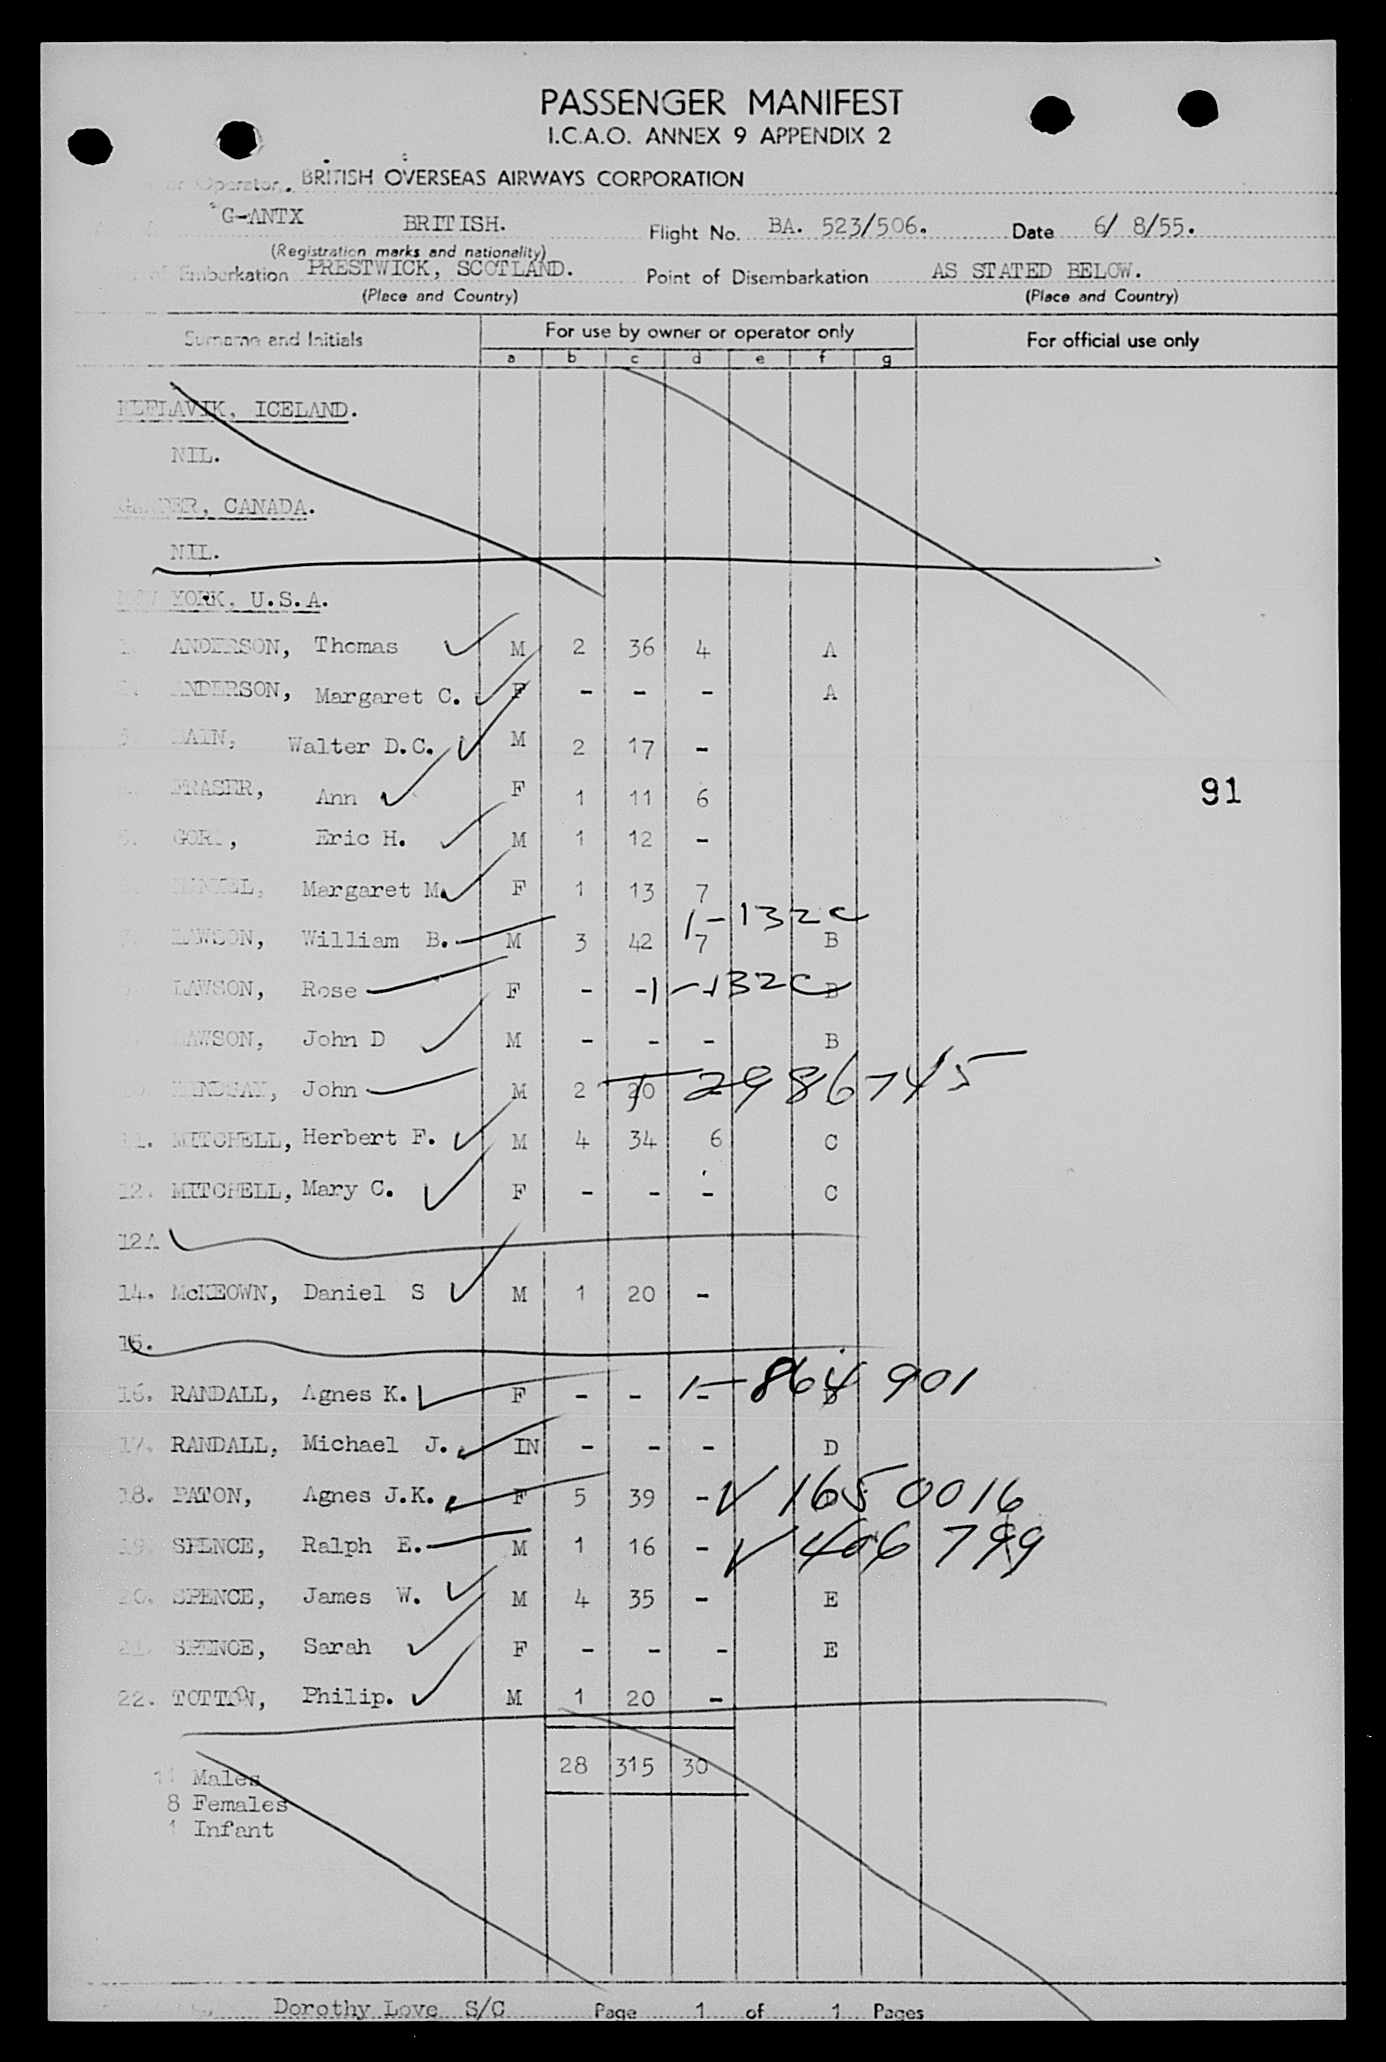 PASSENGER MANIFEST
I.C.A.O. ANNEX 9 APPENDIX 2
or Operator BRITISH OVERSEAS AIRWAYS CORPORATION
G-ANTX BRITISH. Flight No. BA. 523/506. Date 6/ 8/55.
(Registration marks and nationality)
of Embarkation PRESTWICK, SCOTLAND. Point of Disembarkation AS STATED BELOW.
(Place and Country) (Place and Country)
Surname and Initials For use by owner or operator only For official use only
a b c d e f g
KEFLAVIK, ICELAND.
NIL.
GANDER, CANADA.
NIL.
NEW YORK, U.S.A.
1. ANDERSON, Thomas M 2 36 4 A
2. ANDERSON, Margaret C. F - - - A
Walter D.C. M 2 17 -
91
FRASER, Ann F 1 11 6
5. Eric H. M 1 12 -
Margaret M. F 1 13 7
1-132c
LAWSON, William B. M 3 42 7 B
LAWSON, Rose F - - 1-132c B
LAWSON, John D M - - - B
John M 2 20 2986745
11. MITCHELL, Herbert F. M 4 34 6 C
12. MITCHELL, Mary C. F - - - C
12A
14. McKEOWN, Daniel S M 1 20 -
15.
16. RANDALL, Agnes K. F - - - 1-864 901
17. RANDALL, Michael J. IN - - - D
18. PATON, Agnes J.K. F 5 39 - V 1650016
19. SPENCE, Ralph E. M 1 16 - V 406 799
20. SPENCE, James W. M 4 35 - E
21. SPENCE, Sarah F - - - E
22. TOTTON, Philip. M 1 20 -
28 315 30
11 Males
8 Females
1 Infant
Dorothy Love S/C Page 1 of 1 Pages